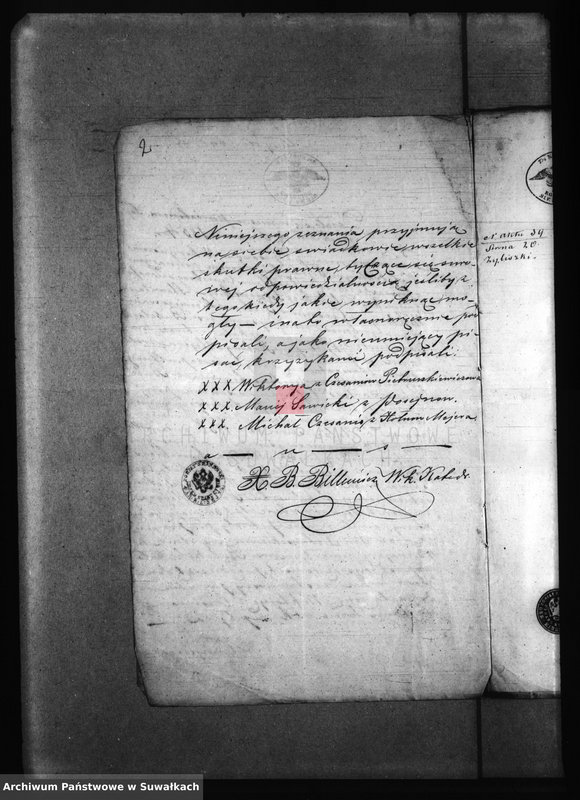 2
Niniejszego zeznania przyjmują
na siebie świadkowie wszelkie
skutki prawne, tyczące się suro-
wej odpowiedzialności, jeśliby z
tego kiedy jakie wyniknąć mo-
gły — i na to własnoręcznie pod
pisali, a jako nieumiejący pi-
sać, krzyżykami podpisali.
XXX Wiktorya z Czesaniów Pietruszkiewiczowa
XXX. Maciej Sawicki z Posejnun.
XXX. Michał Czesanis z Folum Majera
a — n — i —
X B Billewicz W. k. Katedr
N Aktu 39
Strona 20.
ARCHIWUM PAŃSTWOWE
Archiwum Państwowe w Suwałkach